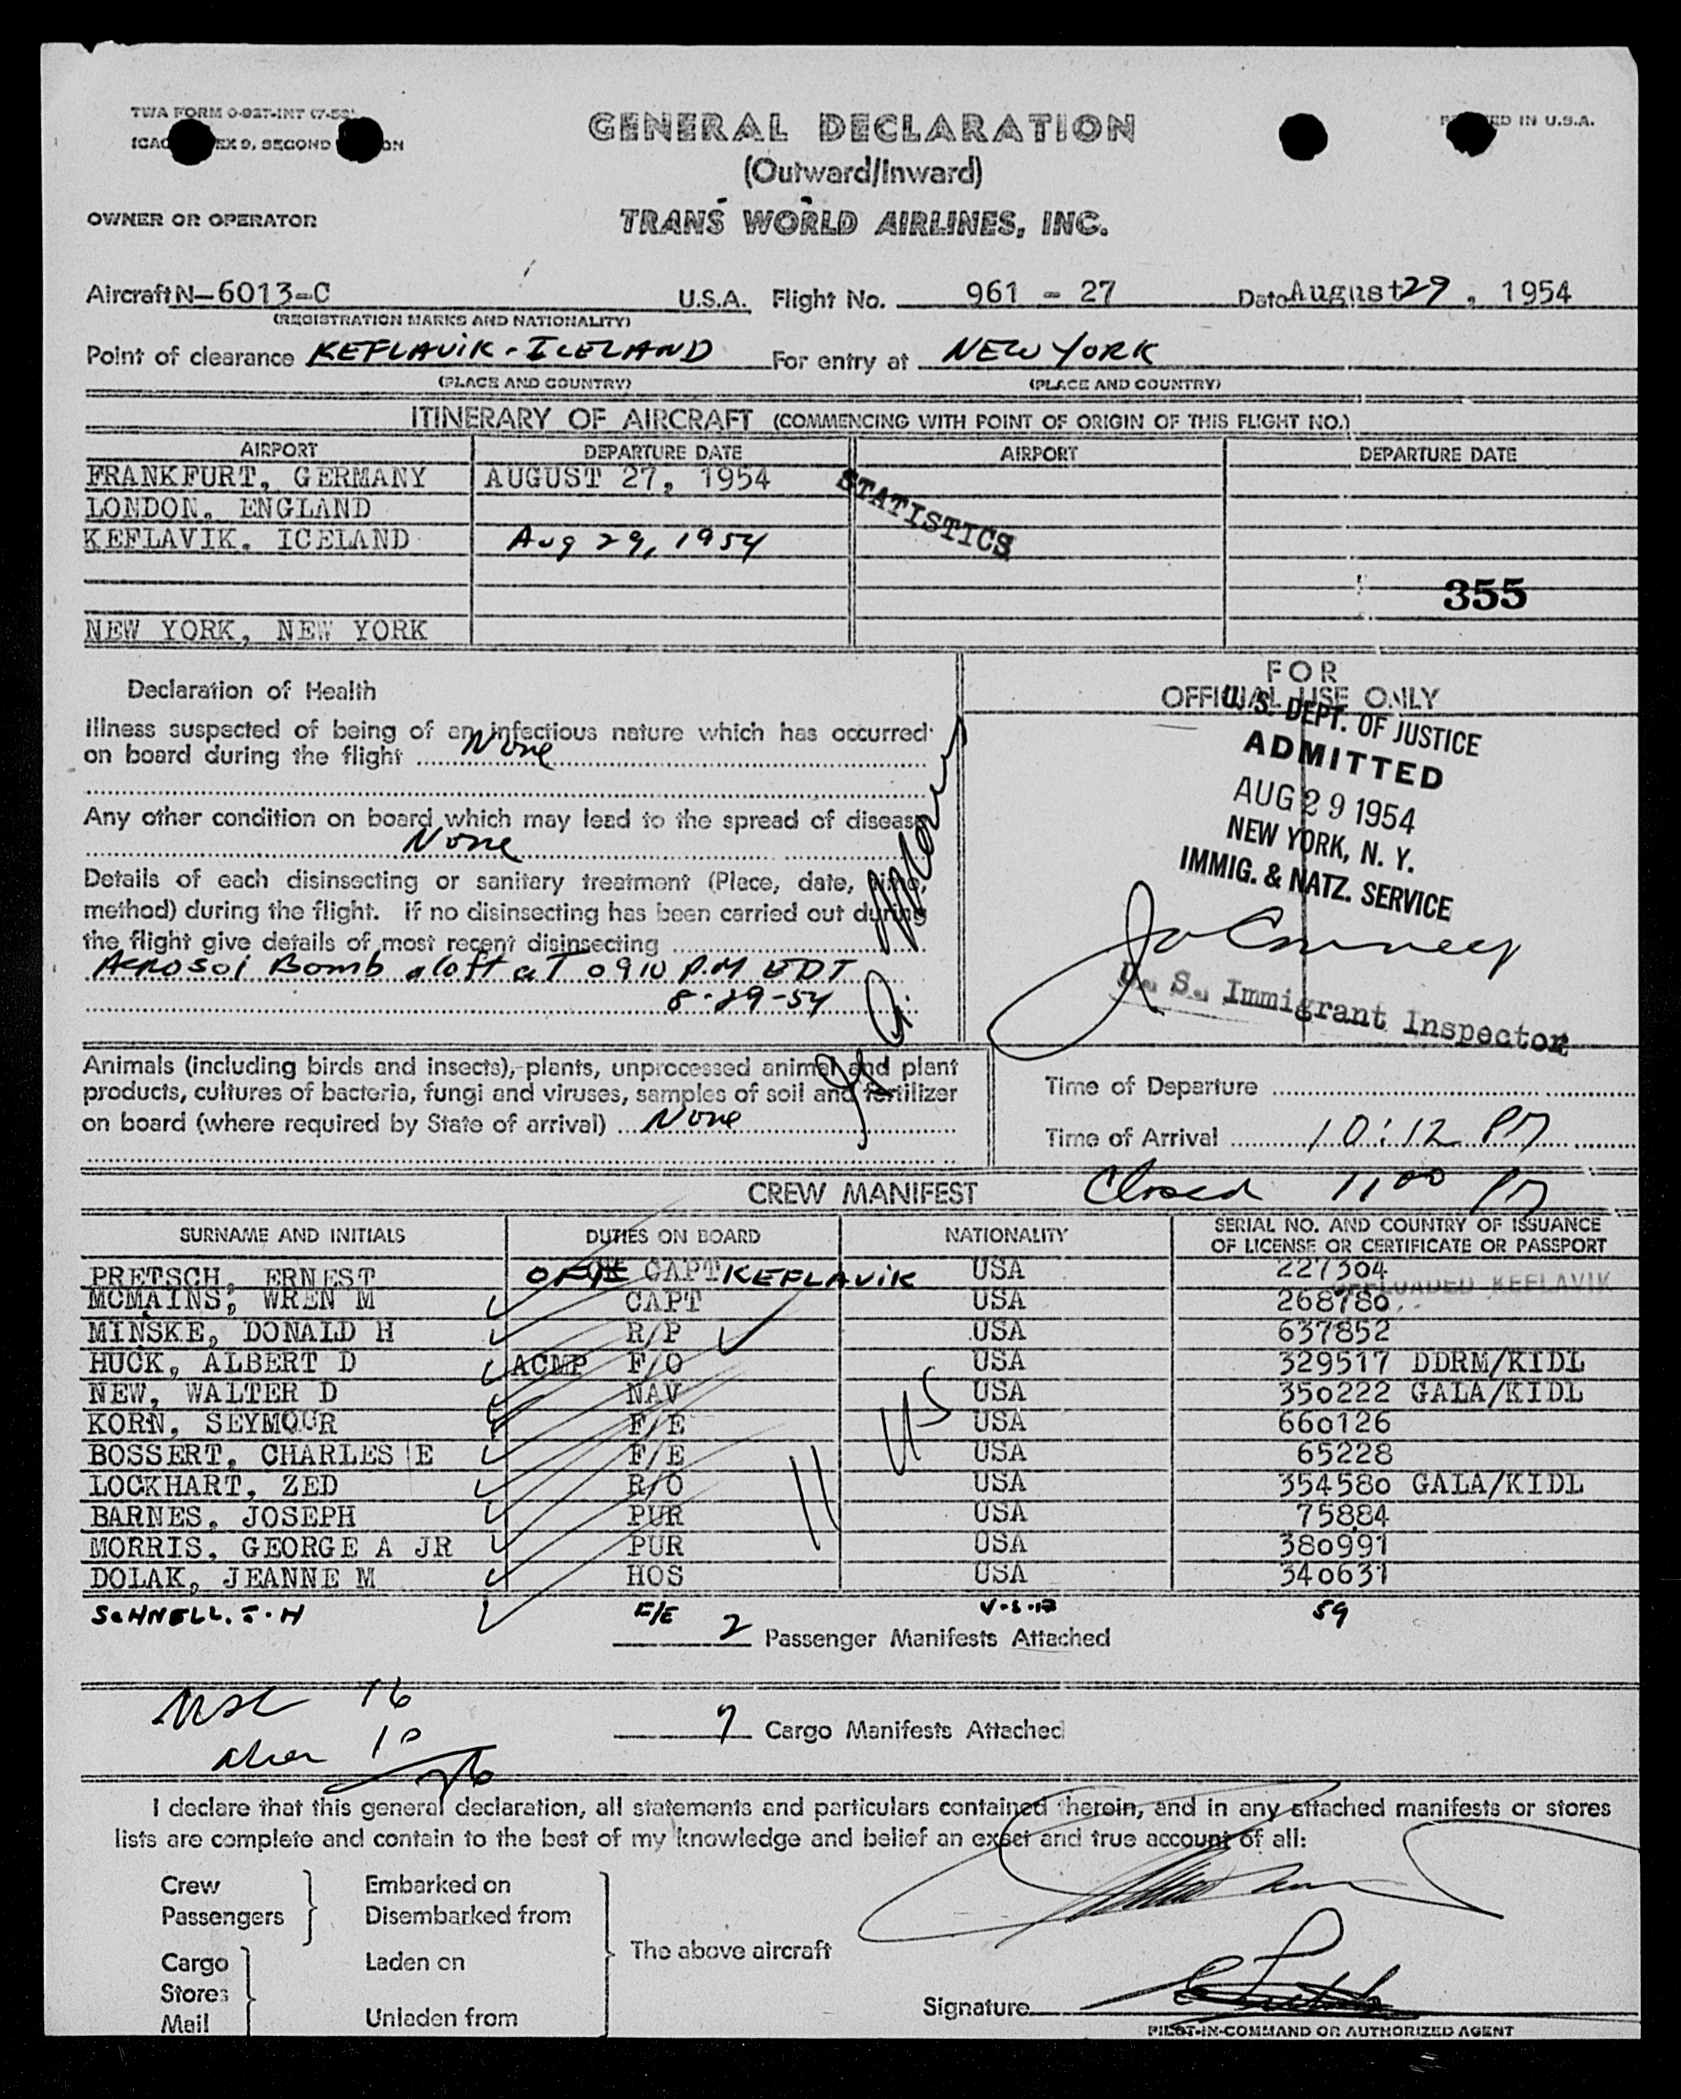 TWA FORM 0-927-INT (7-52)
GENERAL DECLARATION
IN U.S.A.
EX 9, SECOND
(Outward/Inward)
OWNER OR OPERATOR
TRANS WORLD AIRLINES, INC.
Aircraft N-6013-C U.S.A. Flight No. 961 - 27 Date August 29, 1954
(REGISTRATION MARKS AND NATIONALITY)
Point of clearance KEFLAVIK - ICELAND For entry at NEW YORK
(PLACE AND COUNTRY) (PLACE AND COUNTRY)
ITINERARY OF AIRCRAFT (COMMENCING WITH POINT OF ORIGIN OF THIS FLIGHT NO.)
AIRPORT DEPARTURE DATE AIRPORT DEPARTURE DATE
FRANKFURT, GERMANY AUGUST 27, 1954
STATISTICS
LONDON, ENGLAND
KEFLAVIK, ICELAND Aug 29, 1954
355
NEW YORK, NEW YORK
FOR
OFFICIAL USE ONLY
Declaration of Health
Illness suspected of being of an infectious nature which has occurred
on board during the flight None
Any other condition on board which may lead to the spread of disease
None
Details of each disinsecting or sanitary treatment (Place, date, time,
method) during the flight. If no disinsecting has been carried out during
the flight give details of most recent disinsecting
Aerosol Bomb aloft at 0910 P.M EDT
8-29-54
U.S. DEPT. OF JUSTICE
ADMITTED
AUG 29 1954
NEW YORK, N. Y.
IMMIG. & NATZ. SERVICE
U. S. Immigrant Inspector
Animals (including birds and insects), plants, unprocessed animal and plant
products, cultures of bacteria, fungi and viruses, samples of soil and fertilizer
on board (where required by State of arrival) None
Time of Departure
Time of Arrival 10:12 PM
Closed 11 00 PM
CREW MANIFEST
SURNAME AND INITIALS DUTIES ON BOARD NATIONALITY SERIAL NO. AND COUNTRY OF ISSUANCE
OF LICENSE OR CERTIFICATE OR PASSPORT
PRETSCH, ERNEST CAPT KEFLAVIK USA 227304
OFFLOADED KEFLAVIK
MCMAINS, WREN M CAPT USA 268780
MINSKE, DONALD H R/P USA 637852
HUCK, ALBERT D ACMP F/O USA 329517 DDRM/KIDL
NEW, WALTER D NAV USA 350222 GALA/KIDL
KORN, SEYMOUR F/E USA 660126
BOSSERT, CHARLES E F/E USA 65228
LOCKHART, ZED R/O USA 354580 GALA/KIDL
BARNES, JOSEPH PUR USA 75884
MORRIS, GEORGE A JR PUR USA 380991
DOLAK, JEANNE M HOS USA 340631
11 US
SCHNELL. J. H F/E 59
2 Passenger Manifests Attached
16
7 Cargo Manifests Attached
Alien 10
26
I declare that this general declaration, all statements and particulars contained therein, and in any attached manifests or stores
lists are complete and contain to the best of my knowledge and belief an exact and true account of all:
Crew Embarked on
Passengers Disembarked from
The above aircraft
Cargo Laden on
Stores
Mail Unladen from
Signature
PILOT-IN-COMMAND OR AUTHORIZED AGENT